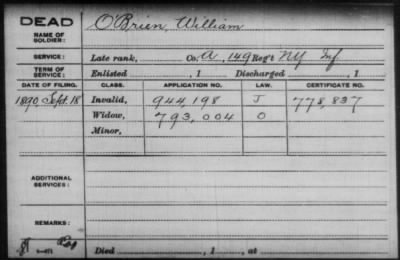 DEAD
NAME OF SOLDIER: O'Brien, William
SERVICE: Late rank, Co. A, 149 Reg't NY Inf.
TERM OF SERVICE: Enlisted , 1 Discharged , 1
DATE OF FILING. CLASS. APPLICATION NO. LAW. CERTIFICATE NO.
1890, Sept. 18 Invalid, 944,198 J 778,837
Widow, 793,004 O
Minor,
ADDITIONAL SERVICES:
REMARKS:
Died , 1 , at